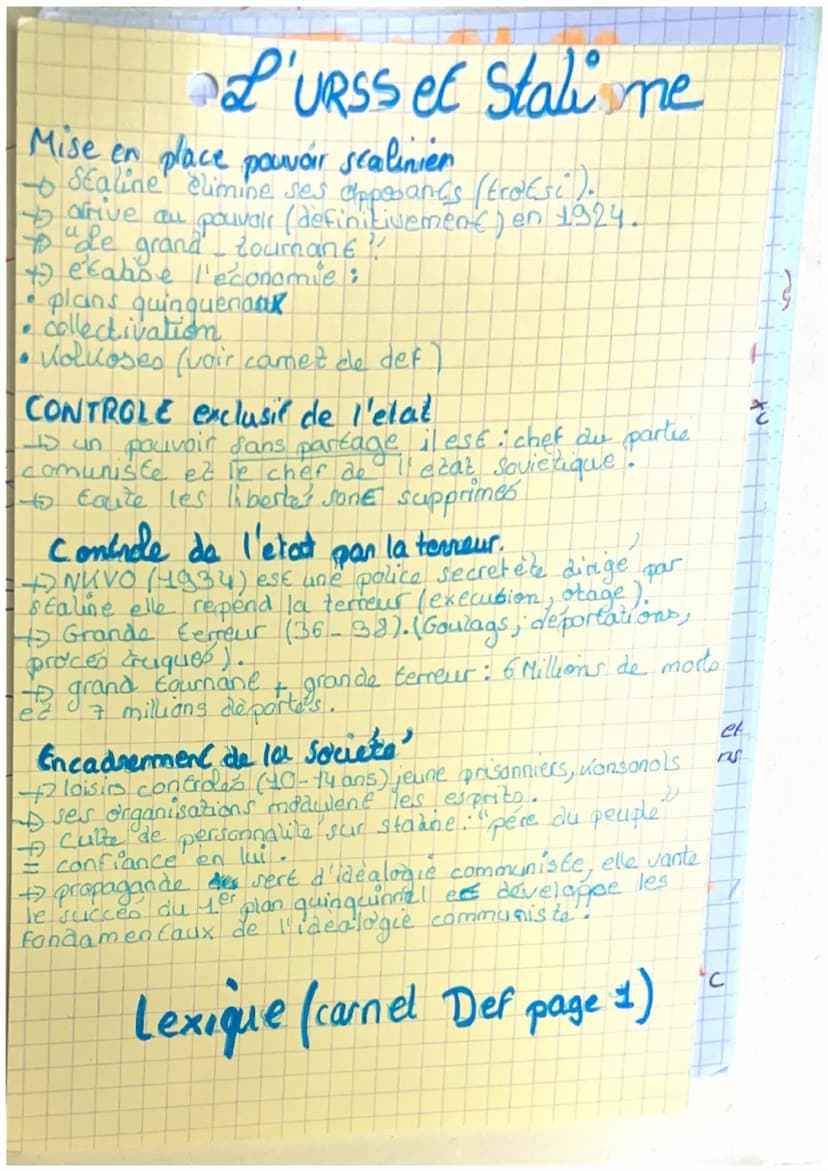 L'URSS et Staline
Mise en place pouvoir stalinien
→ Staline élimine ses opposants (trotsi).
→ arrive au pouvoir (définitivement) en 1924.
→ "Le grand tournant"
→ étatise l'économie :
• plans quinquenaux
• collectivation
• Kolkoses (voir carnet de def)
CONTROLE exclusif de l'etat
→ un pouvoir sans partage il est : chef du partie
comuniste et le chef de l'etat soviétique.
→ toute les libertés sont supprimés
Controle de l'etat par la terreur.
→ NKVD (1934) est une police secretète dirigé par
staline elle repend la terreur (execution, otage).
→ Grande terreur (36-38). (Goulags, déportations,
procés truqués).
→ grand tournant + grande terreur : 6 Millions de morts
et 7 millions déportés.
Encadrement de la societé
→ loisirs controlés (10-14 ans) jeune prisonniers, konsonols
→ ses organisations modulent les esprits.
→ Culte de personnalité sur staline : "pére du peuple"
= confiance en lui.
→ propagande sert d'idéalogie communiste, elle vante
le succés du 1er plan quinquinnel et développe les
fondamentaux de l'idéalogie communiste.
Lexique (carnet Def page 1)
et
as
c